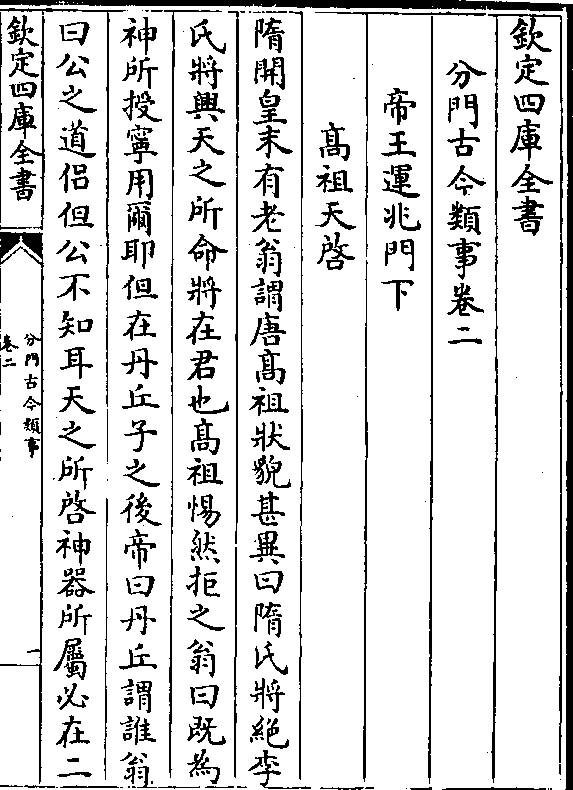 欽定四庫全書
分門古今類事卷二
帝王運兆門下
髙祖天啓
隋開皇末有老翁謂唐髙祖狀貌甚異曰隋氏將絶李
氏將興天之所命將在君也髙祖惕然拒之翁曰既為
神所授寧用爾耶但在丹丘子之後帝曰丹丘謂誰翁
曰公之道侣但公不知耳天之所啓神器所屬必在二
欽定四庫全書
分門古今類事
卷二
一